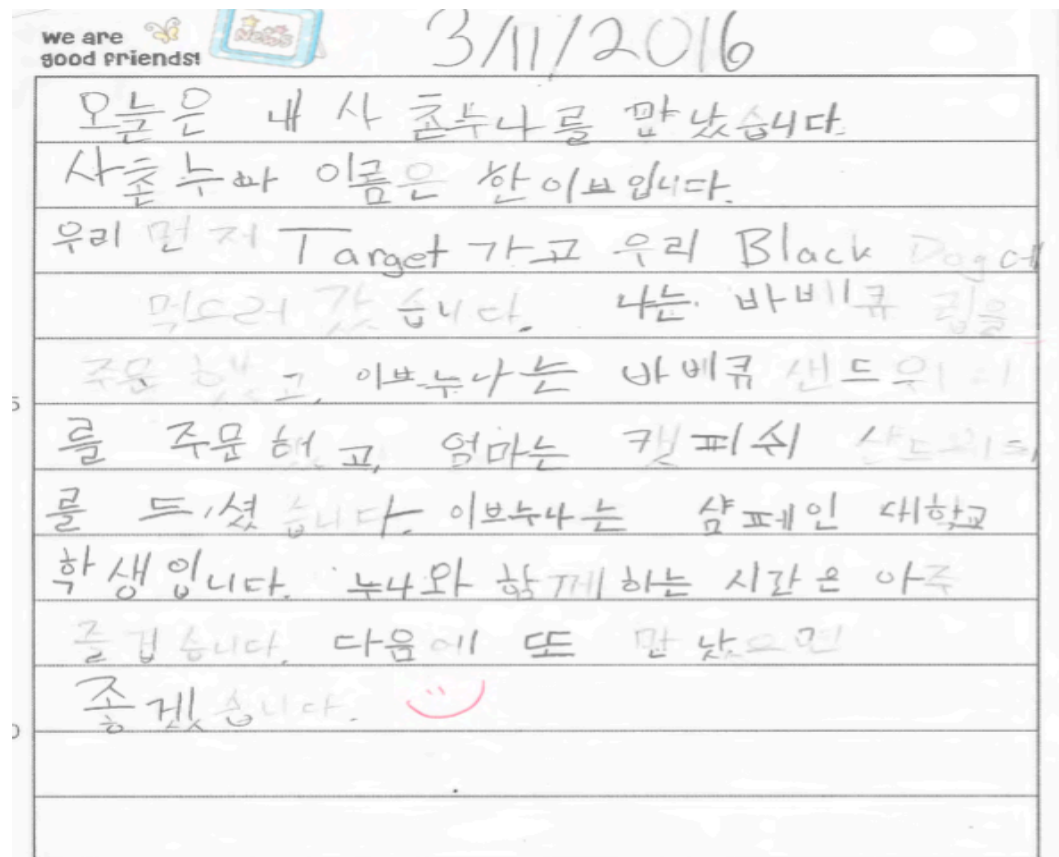 we are
good friends!
NEWS
3/11/2016
오눌은 내 사촌누나를 만났습니다.
사촌누나 이름은 한이브입니다.
우리 먼저 Target 가고 우리 Black Dog에
먹드러 갔습니다. 나는 바베큐 립을
주문 했고, 이브누나는 바베큐 샌드위치
를 주문 했고, 엄마는 캣피쉬 샌드위치
를 드셨습니다. 이브누나는 샴페인 대학교
학생입니다. 누나와 함께 하는 시간은 아주
즐겁습니다. 다음에 또 만났으면
좋겠습니다.